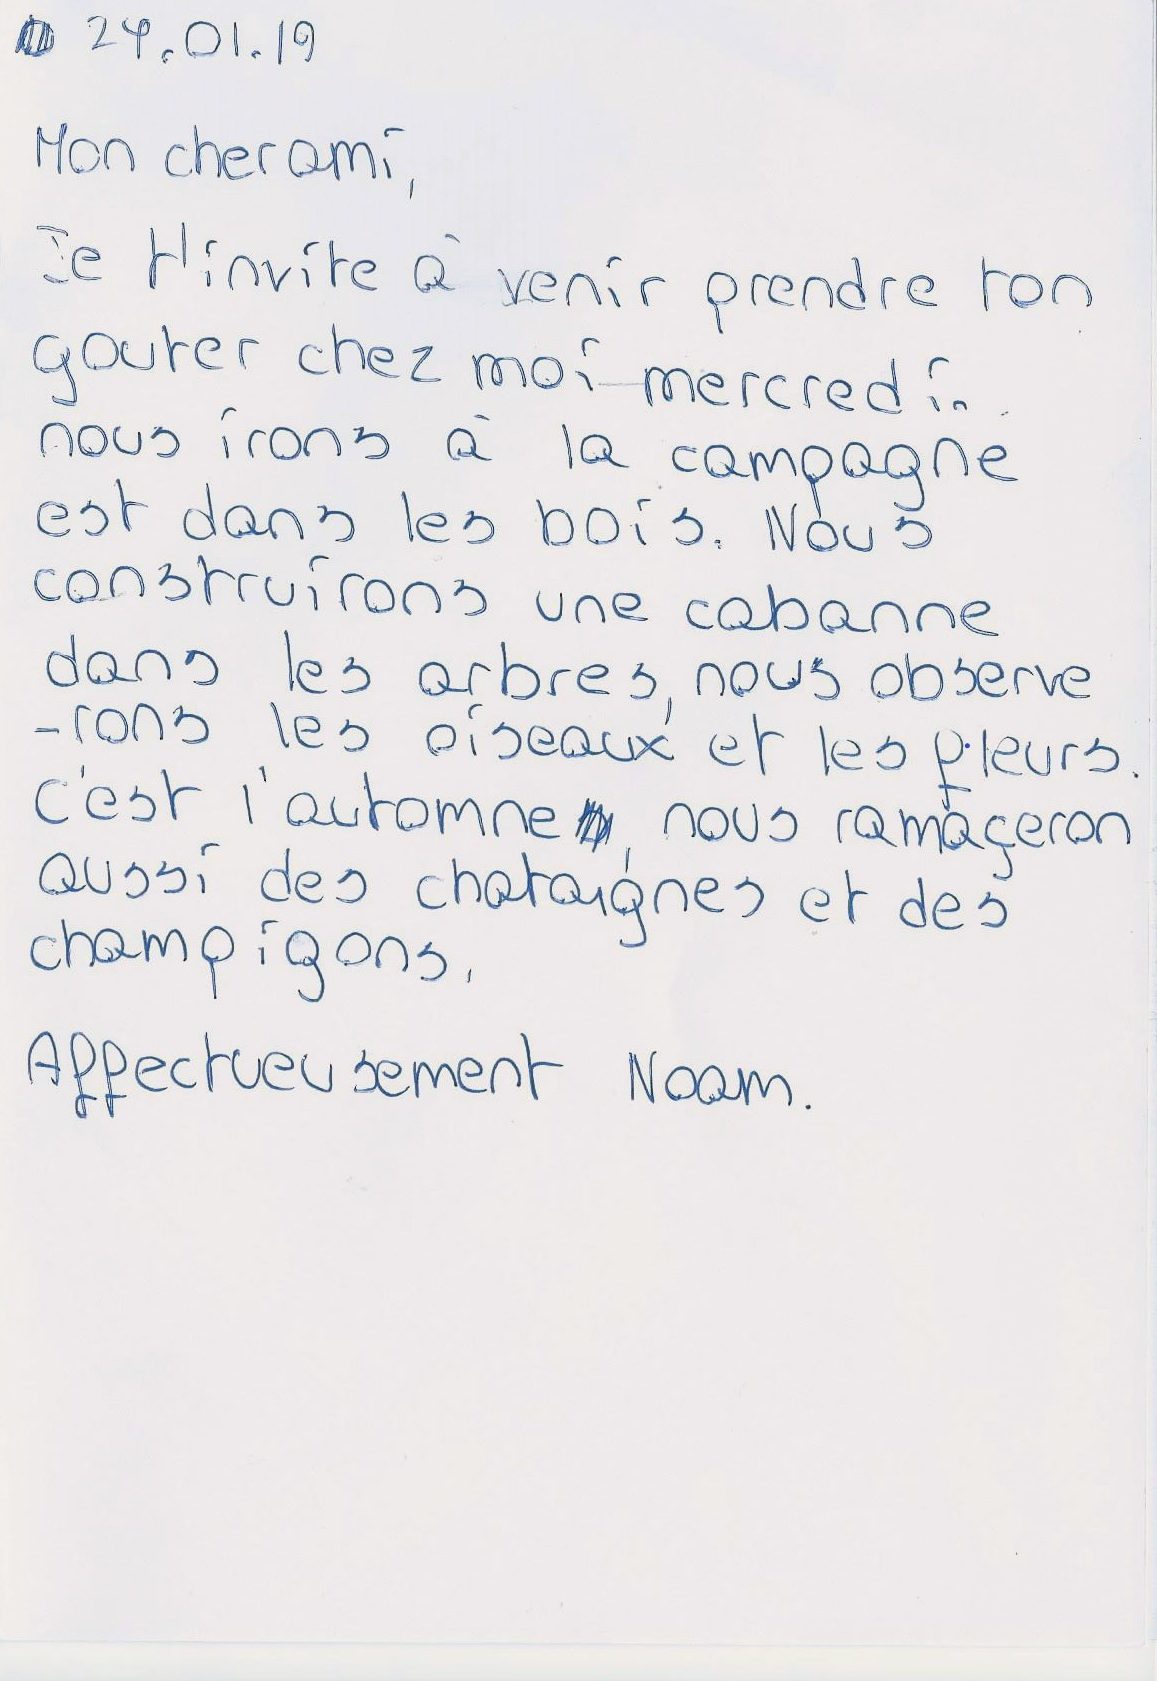 24.01.19
Mon cher ami,
Je t'invite à venir prendre ton
gouter chez moi mercredi.
nous irons à la campagne
est dans les bois. Nous
construirons une cabanne
dans les arbres, nous observe
-rons les oiseaux et les fleurs.
C'est l'automne, nous ramaçeron
aussi des chataignes et des
champigons.
Affectueusement Noam.